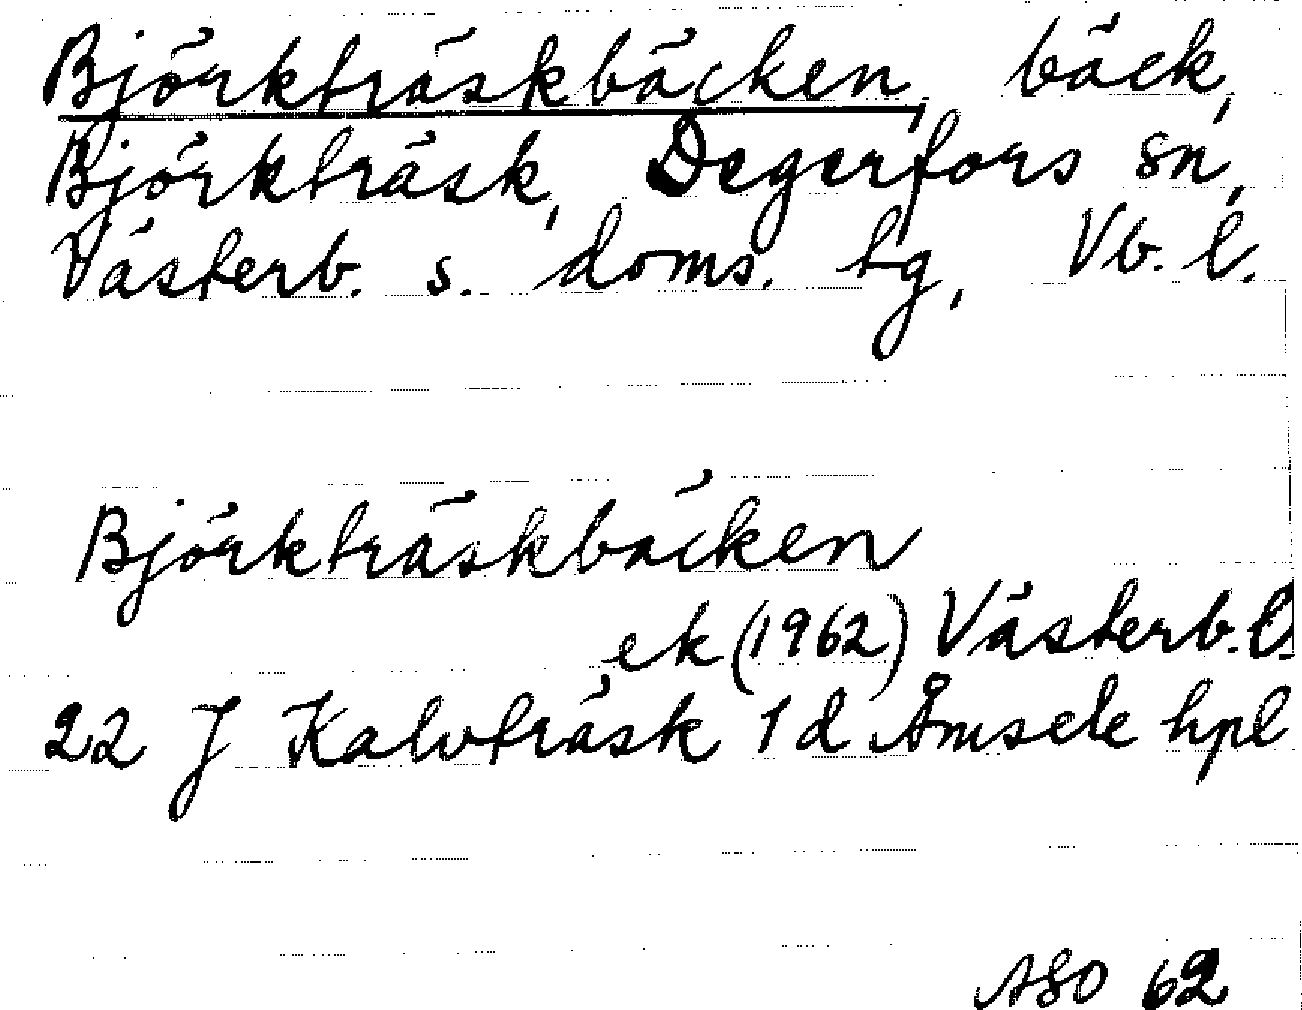 Björkträskbäcken, bäck,
Björkträsk, Degerfors sn,
Västerb. s. doms. tg, Vb. l.
Björkträskbäcken
ek (1962) Västerb. l.
22 J Kalvträsk 1 d Åmsele hpl
ASO 62